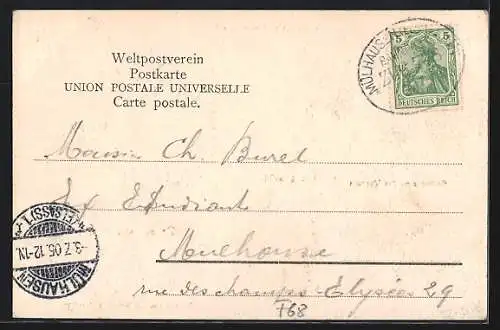 Weltpostverein
Postkarte
UNION POSTALE UNIVERSELLE
Carte postale.
5 5
DEUTSCHES REICH
MÜLHAUS
Ch. Burel
Mulhouse
rue des champs-Elysées 29
MÜLHAUSEN
-3.7.05.12-1N.
(ELSASS)1
F68